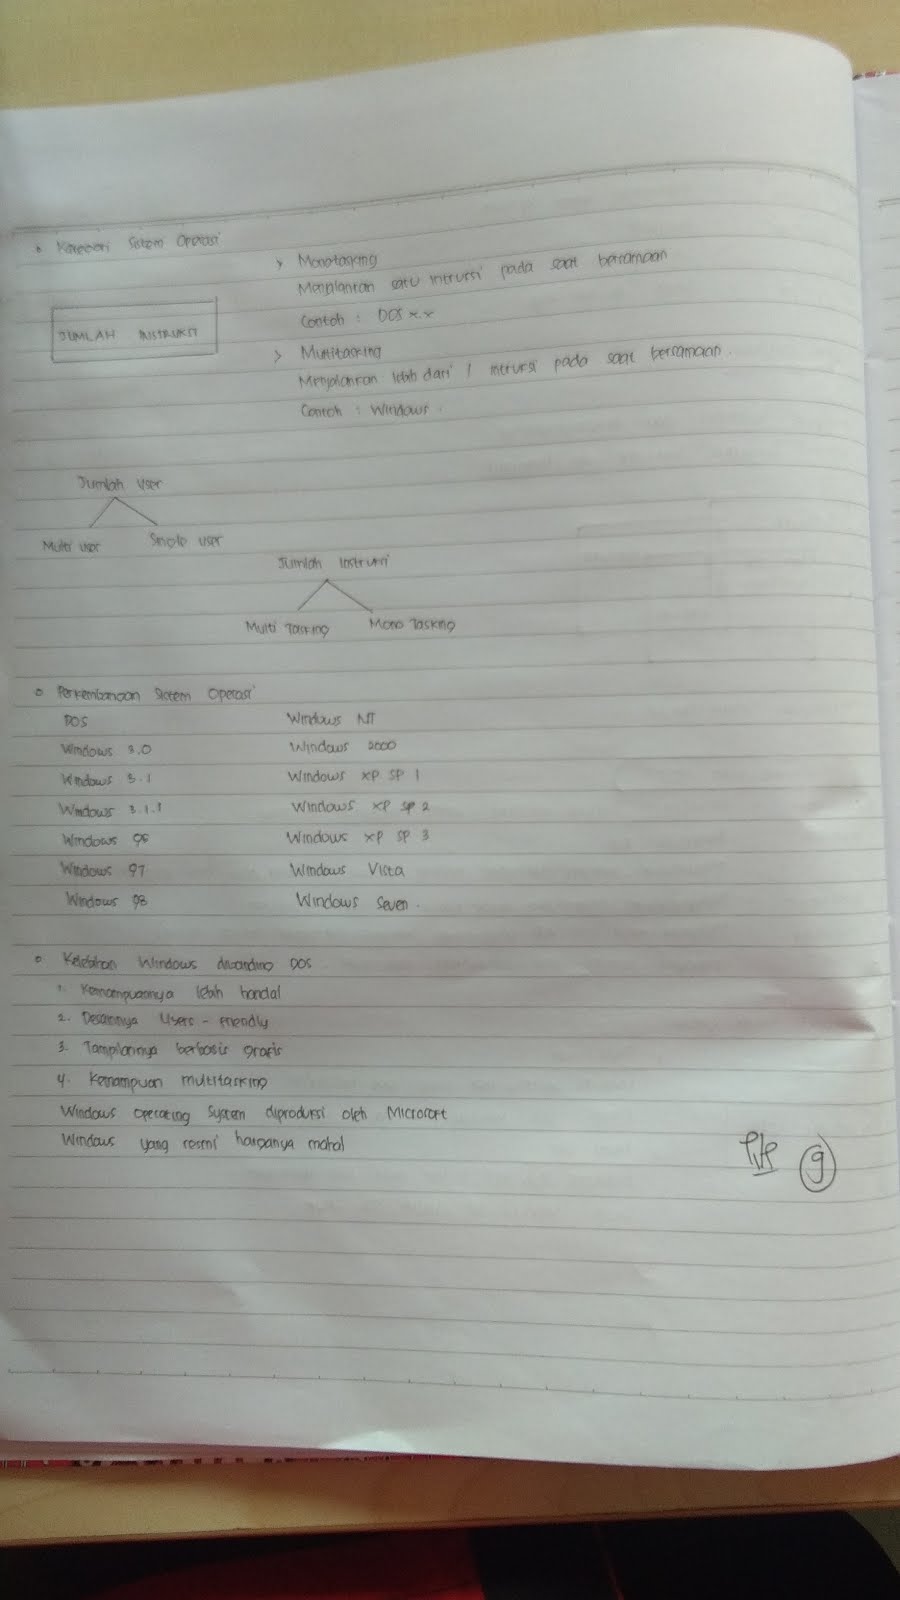 Kategori Sistem Operasi
> Monotasking
Menjalankan satu intruksi pada saat bersamaan
Contoh : DOS x.x
JUMLAH INSTRUKSI
> Multitasking
Menjalankan lebih dari 1 intruksi pada saat bersamaan.
Contoh : Windows.
Jumlah User
Multi user Single user
Jumlah Instruksi
Multi Tasking Mono Tasking
Perkembangan Sistem Operasi
DOS Windows NT
Windows 3.0 Windows 2000
Windows 3.1 Windows xp sp 1
Windows 3.1.1 Windows xp sp 2
Windows 95 Windows xp SP 3
Windows 97 Windows Vista
Windows 98 Windows Seven.
Kelebihan Windows dibanding DOS
1. Kemampuannya lebih handal
2. Desainnya Users-Friendly
3. Tampilannya berbasis grafis
4. Kemampuan multitasking
Windows Operating System diproduksi oleh Microsoft
Windows yang resmi harganya mahal
9